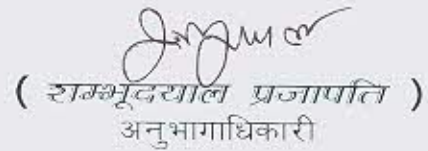 ( शम्भूदयाल प्रजापति )
अनुभागाधिकारी